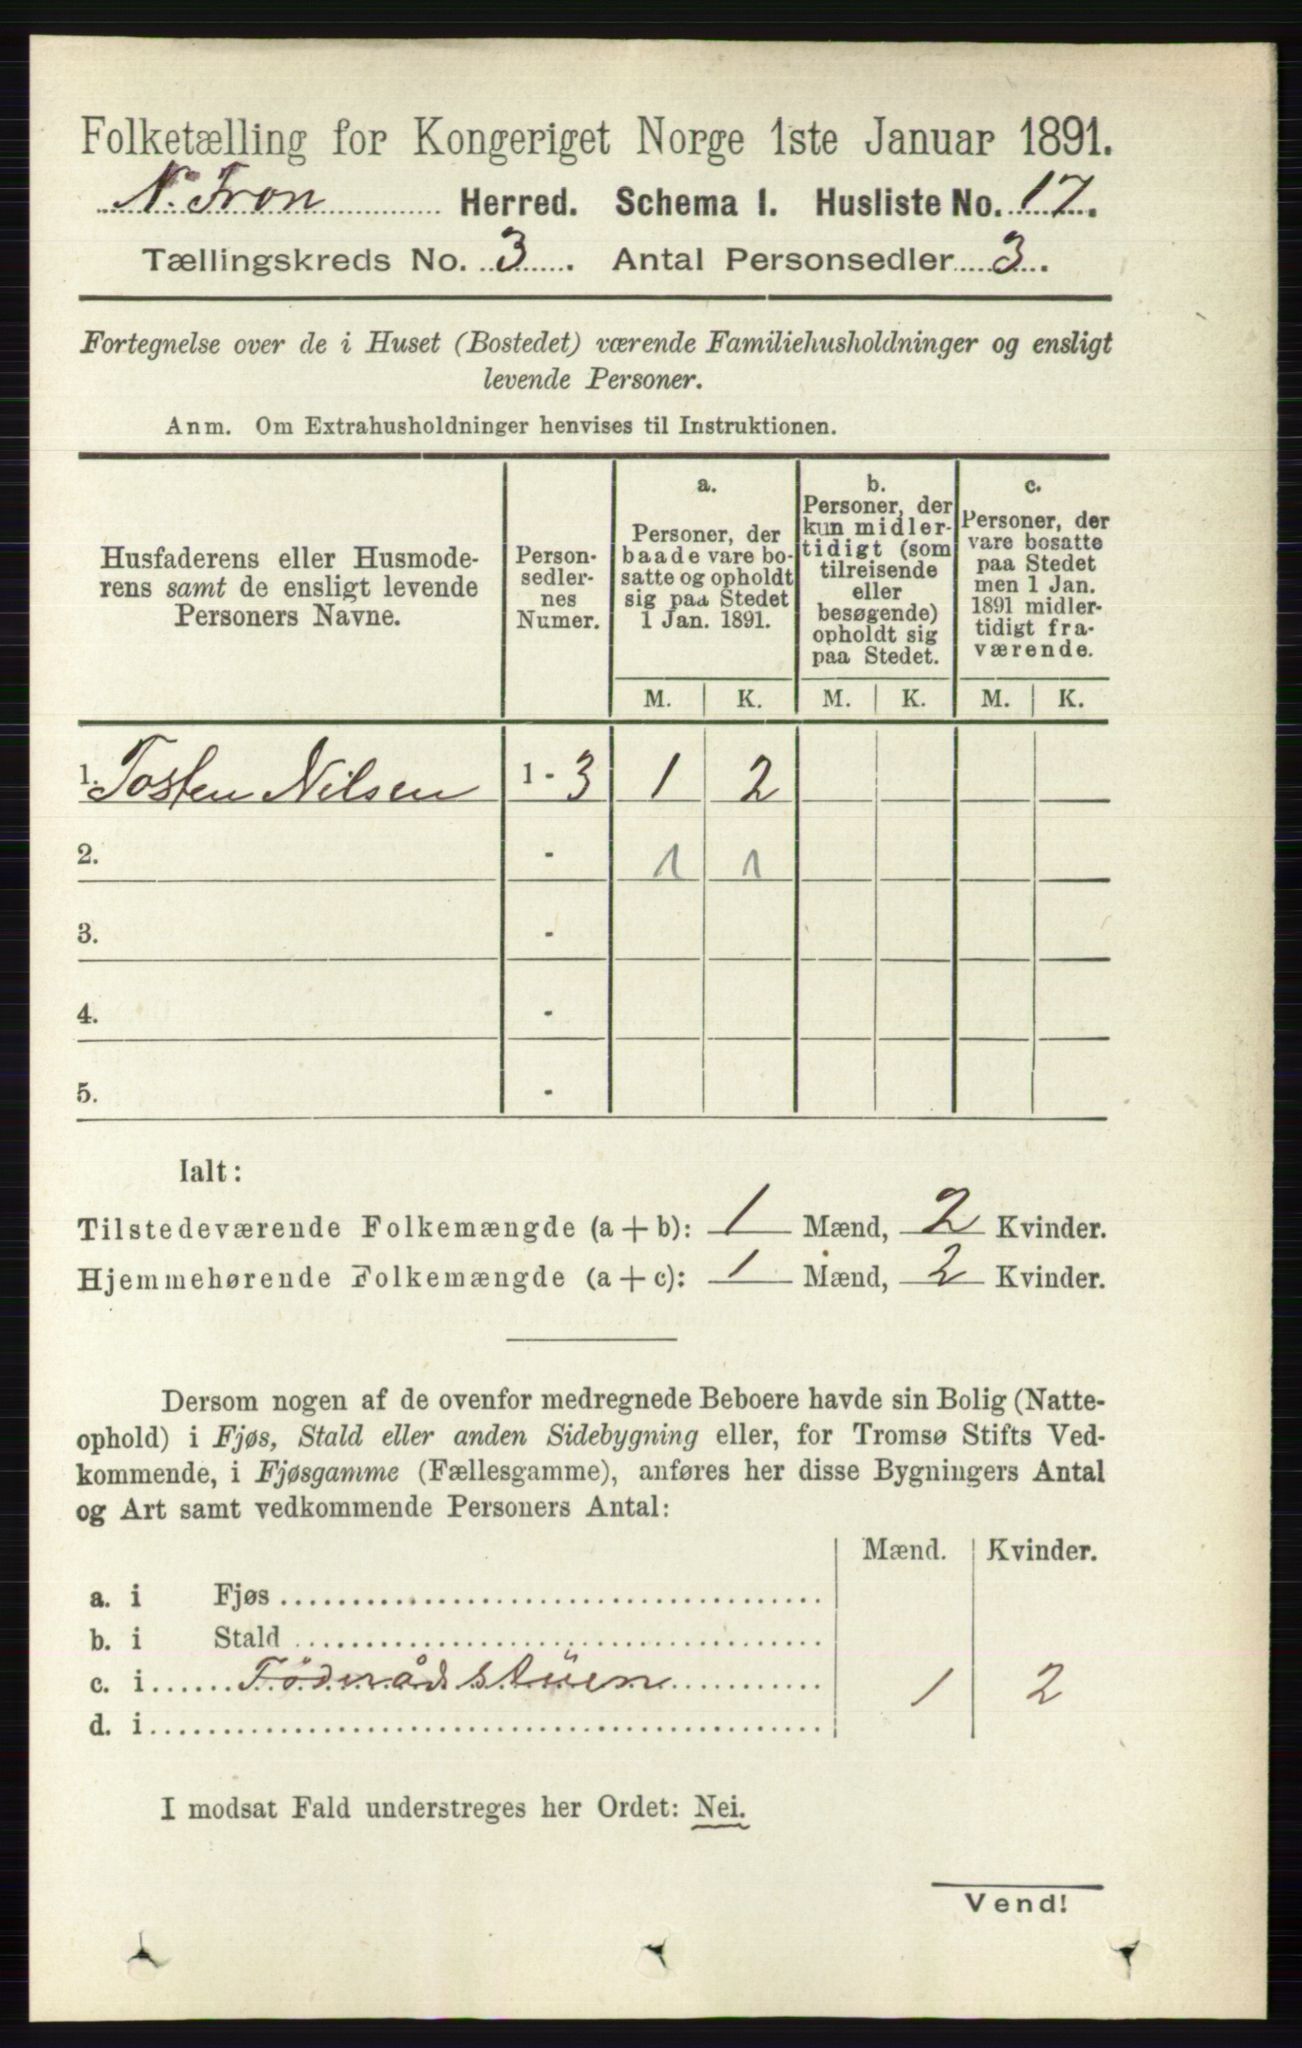 Folketælling for Kongeriget Norge 1ste Januar 1891.
N. Fron Herred. Schema I. Husliste No. 17.
Tællingskreds No. 3. Antal Personsedler 3.
Fortegnelse over de i Huset (Bostedet) værende Familiehusholdninger og ensligt
levende Personer.
Anm. Om Extrahusholdninger henvises til Instruktionen.
Husfaderens eller Husmode-
rens samt de ensligt levende
Personers Navne.
Person-
sedler-
nes
Numer.
a.
Personer, der
baade vare bo-
satte og opholdt
sig paa Stedet
1 Jan. 1891.
b.
Personer, der
kun midler-
tidigt (som
tilreisende
eller
besøgende)
opholdt sig
paa Stedet.
c.
Personer, der
vare bosatte
paa Stedet
men 1 Jan.
1891 midler-
tidigt fra-
værende.
M. K. M. K. M. K.
1. Tosten Nilsen 1 - 3 1 2
2. - 1 1
3. -
4. -
5. -
Ialt:
Tilstedeværende Folkemængde (a + b): 1 Mænd, 2 Kvinder.
Hjemmehørende Folkemængde (a + c): 1 Mænd, 2 Kvinder.
Dersom nogen af de ovenfor medregnede Beboere havde sin Bolig (Natte-
ophold) i Fjøs, Stald eller anden Sidebygning eller, for Tromsø Stifts Ved-
kommende, i Fjøsgamme (Fællesgamme), anføres her disse Bygningers Antal
og Art samt vedkommende Personers Antal:
Mænd. Kvinder.
a. i Fjøs
b. i Stald
c. i Föderådstüen 1 2
d. i
I modsat Fald understreges her Ordet: Nei.
Vend!